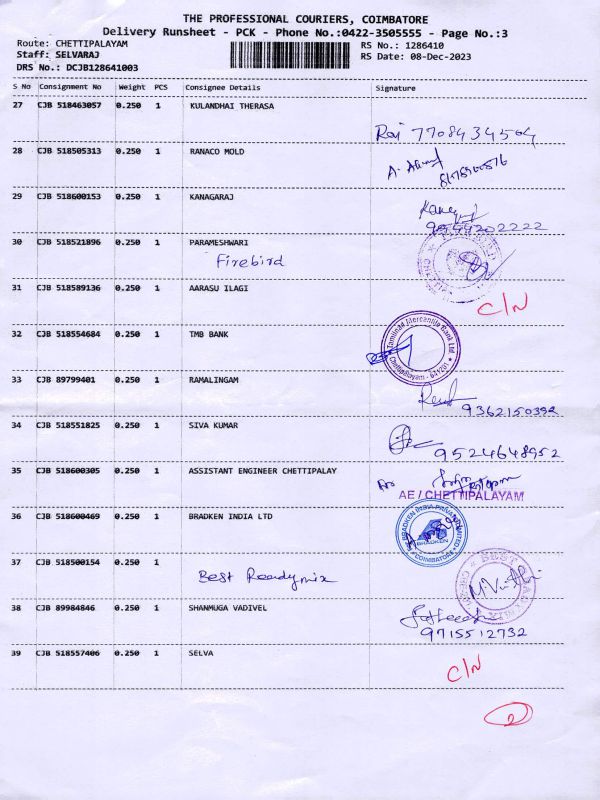 THE PROFESSIONAL COURIERS, COIMBATORE
Delivery Runsheet - PCK - Phone No.:0422-3505555 - Page No.:3
Route: CHETTIPALAYAM RS No.: 1286410
Staff: SELVARAJ RS Date: 08-Dec-2023
DRS No.: DCJB128641003
S No Consignment No Weight PCS Consignee Details Signature
27 CJB 518463057 0.250 1 KULANDHAI THERASA
Raj 7708434504
28 CJB 518505313 0.250 1 RANACO MOLD
29 CJB 518600153 0.250 1 KANAGARAJ
9544202222
30 CJB 518521896 0.250 1 PARAMESHWARI
Firebird
31 CJB 518589136 0.250 1 AARASU ILAGI
C/N
32 CJB 518554684 0.250 1 TMB BANK
Tamilnad Mercantile Bank Ltd.
Chettipalayam - 641201
33 CJB 89799401 0.250 1 RAMALINGAM
9362150392
34 CJB 518551825 0.250 1 SIVA KUMAR
9524648952
35 CJB 518600305 0.250 1 ASSISTANT ENGINEER CHETTIPALAY
AE / CHETTIPALAYAM
36 CJB 518600469 0.250 1 BRADKEN INDIA LTD
BRADKEN INDIA PRIVATE LIMITED
BRADKEN
COIMBATORE
37 CJB 518500154 0.250 1
Best Readymix
38 CJB 89984846 0.250 1 SHANMUGA VADIVEL
9715512732
39 CJB 518557406 0.250 1 SELVA
C/N
2